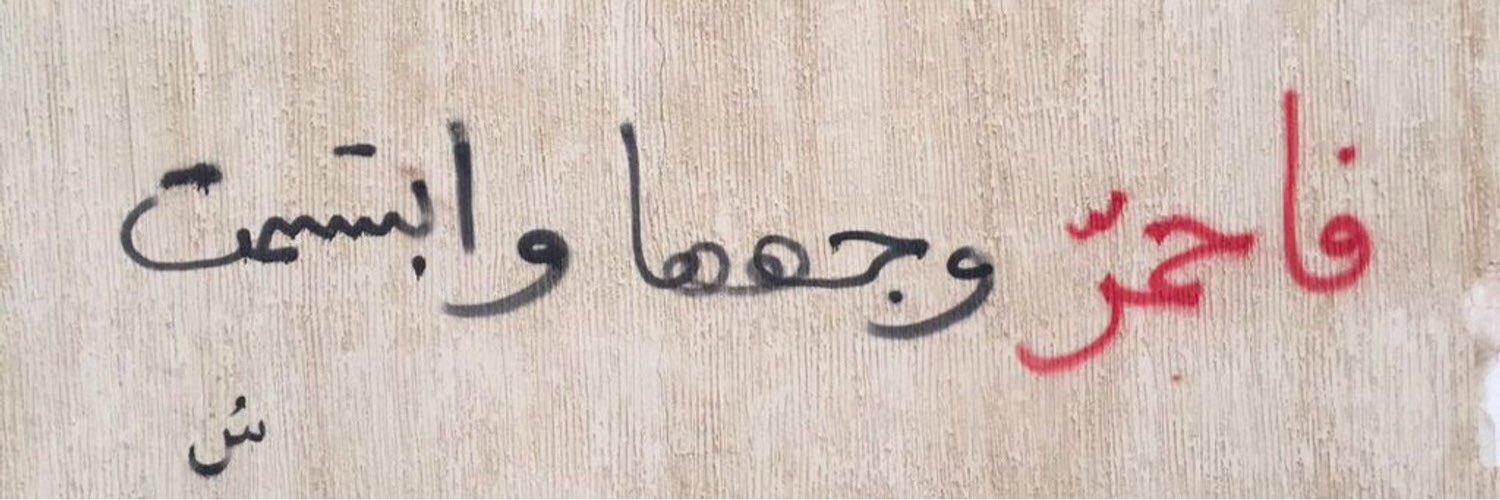 فاحمرّ وجهها وابتسمت
سُ